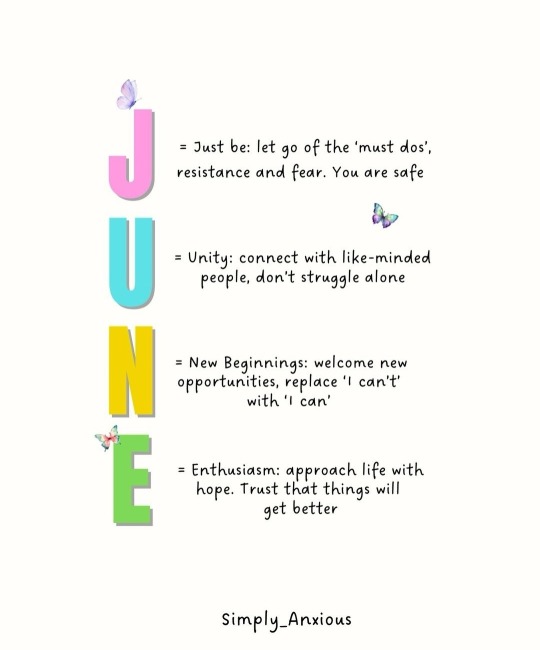 J = Just be: let go of the ‘must dos’,
resistance and fear. You are safe
U = Unity: connect with like-minded
people, don't struggle alone
N = New Beginnings: welcome new
opportunities, replace ‘I can't’
with ‘I can’
E = Enthusiasm: approach life with
hope. Trust that things will
get better
Simply_Anxious